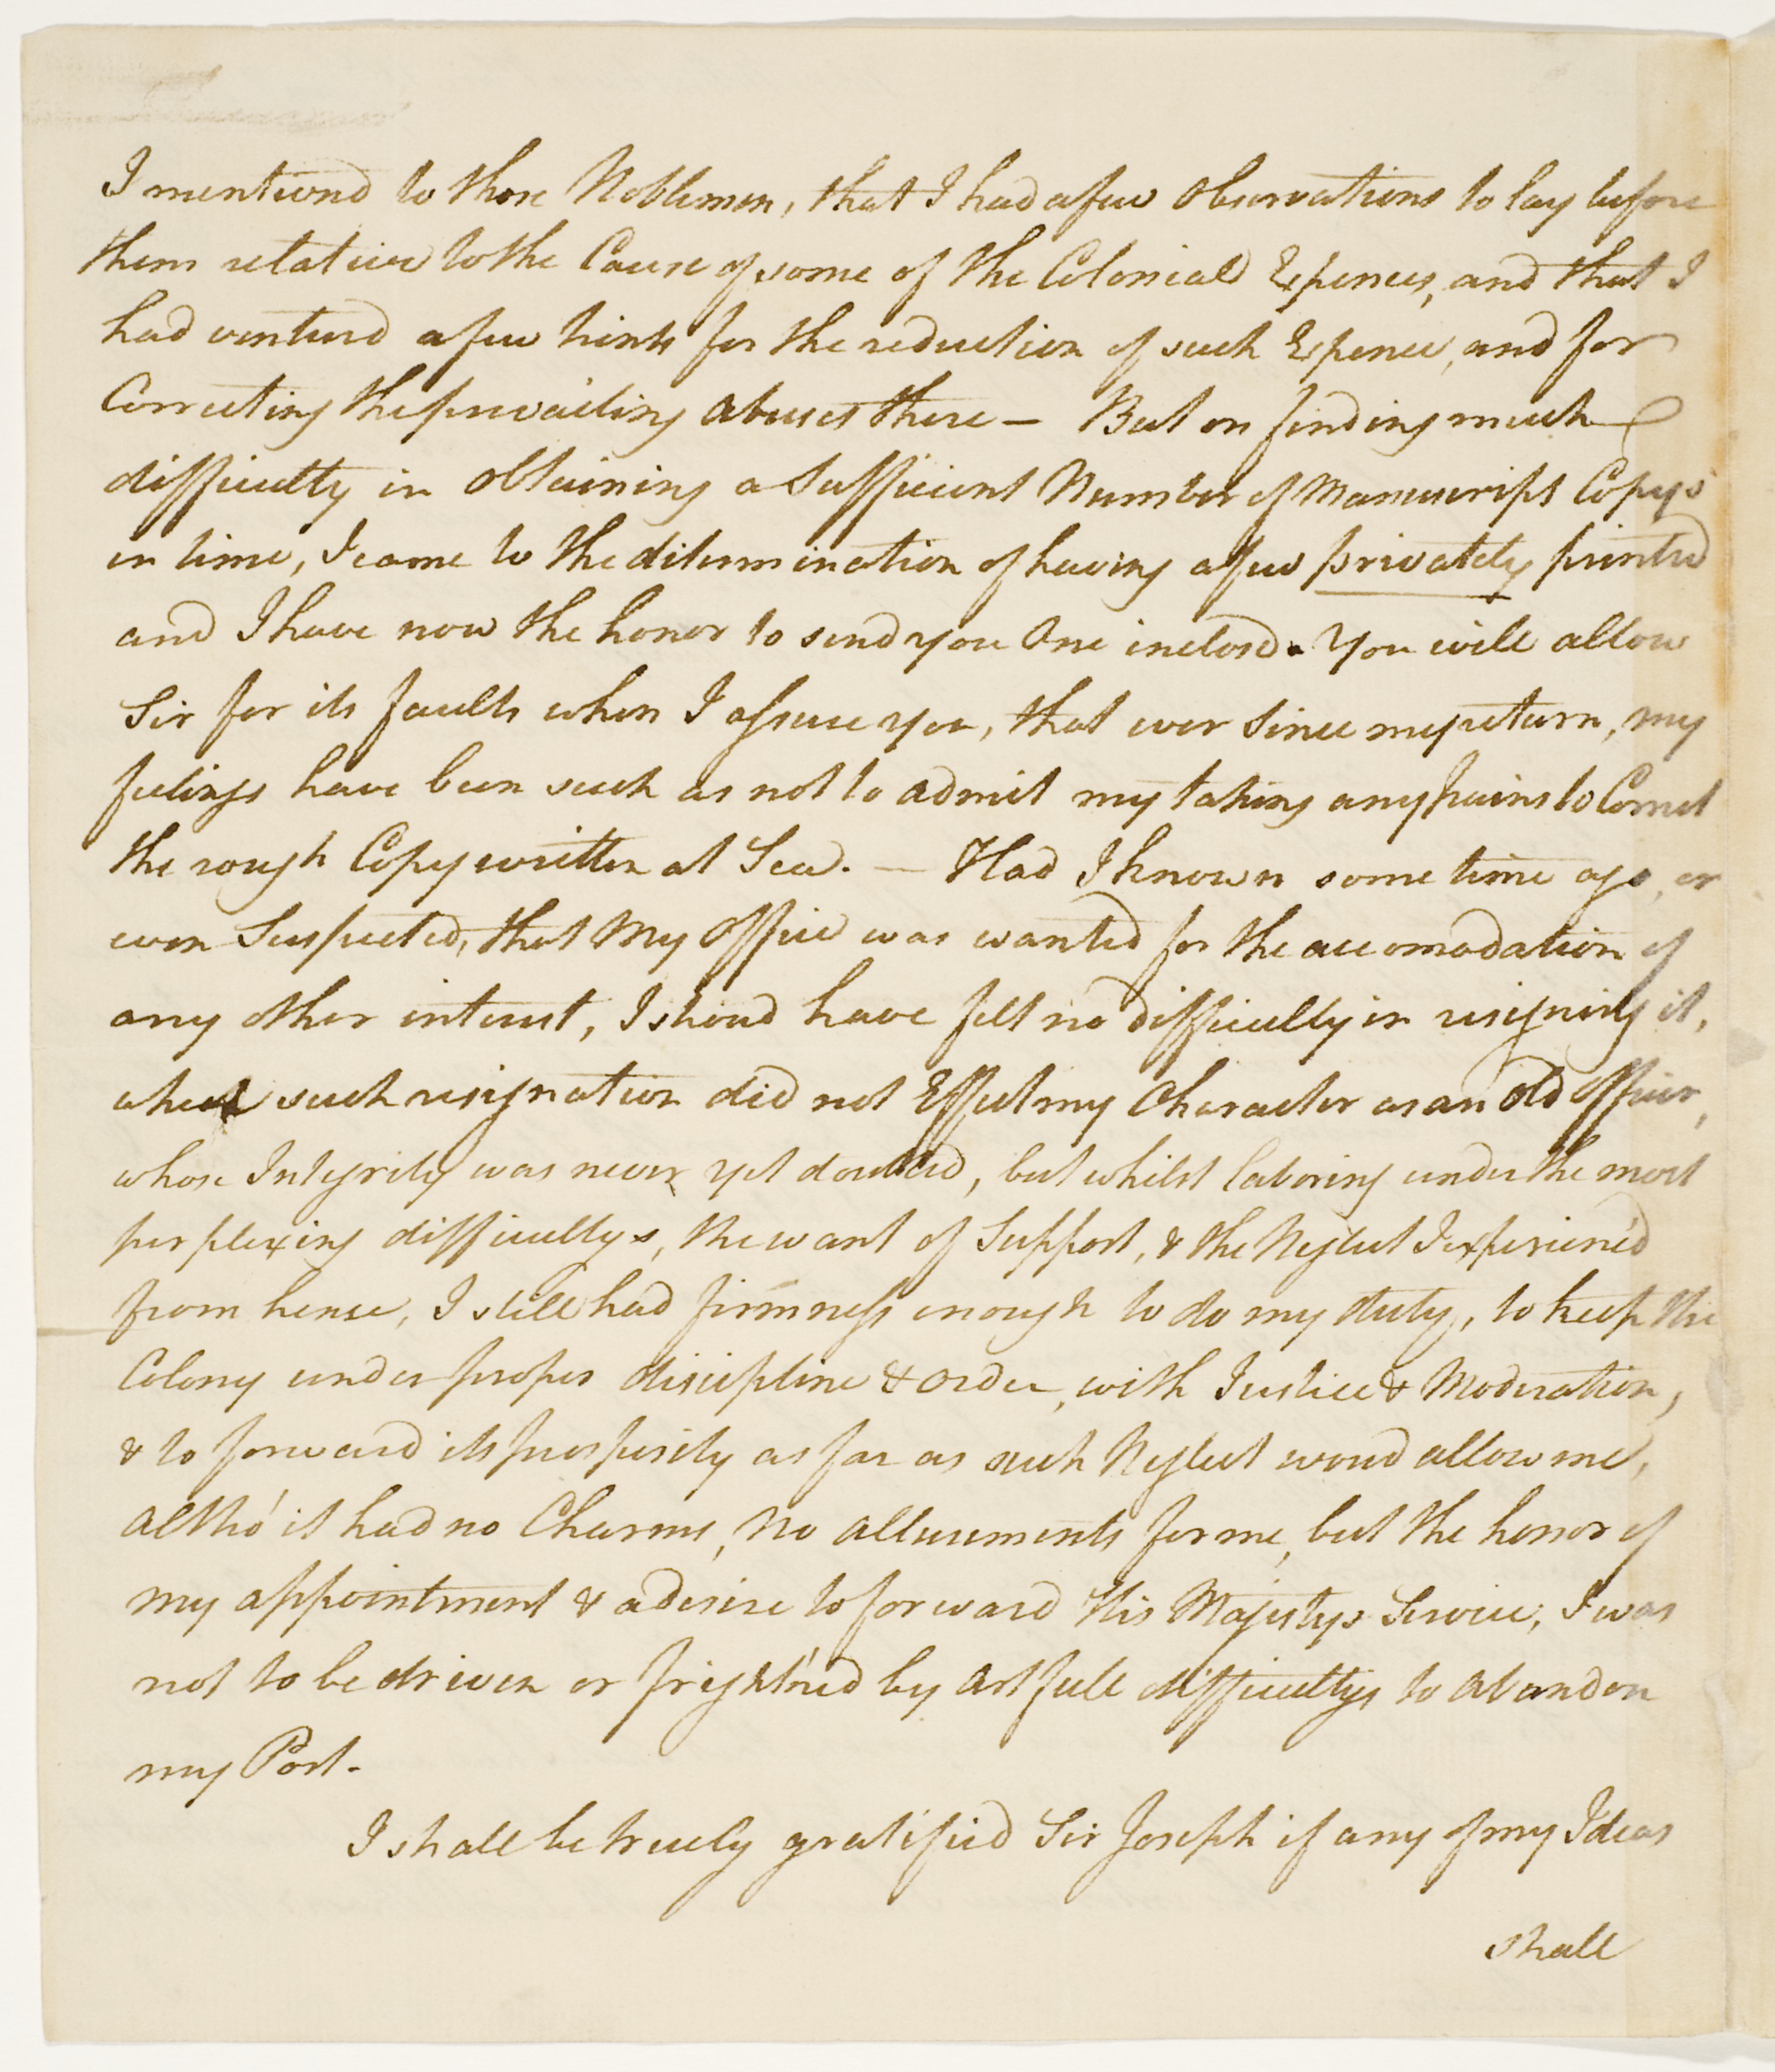 I mentiond to those Noblemen, that I had a few Observations to lay before
them relative to the Cause of some of the Colonial Expences, and that I
had venturd a few hints for the reduction of such Expence, and for
Correcting the prevailing abuses there — But on finding much
difficulty in obtaining a Sufficient Number of Manuscript Copys
in time, I came to the determination of having a few privately printed
and I have now the honor to send you One inclosd. You will allow
Sir for its faults when I assure you, that ever since my return, my
feelings have been such as not to admit my taking any pains to Correct
the rough Copy written at Sea. — Had I known some time ago, or
even Suspected, that My Office was wanted for the accomodation of
any other interest, I shoud have felt no difficulty in resigning it,
when such resignation did not Effect my Character as an Old Officer,
whose Integrity was never yet doubted, but whilst laboring under the most
perplexing difficultys, the want of Support, & the Neglect I experienc'd
from hence, I still had firmness enough to do my duty, to keep the
Colony under proper discipline & order, with Justice & Moderation,
& to forward its prosperity as far as such Neglect woud allow me,
altho' it had no Charms, no allurements for me, but the honor of
my appointment & a desire to forward His Majestys Service, I was
not to be driven or fright'ned by artfull difficultys to abandon
my Post.
I shall be truely gratified Sir Joseph if any of my Ideas
shall